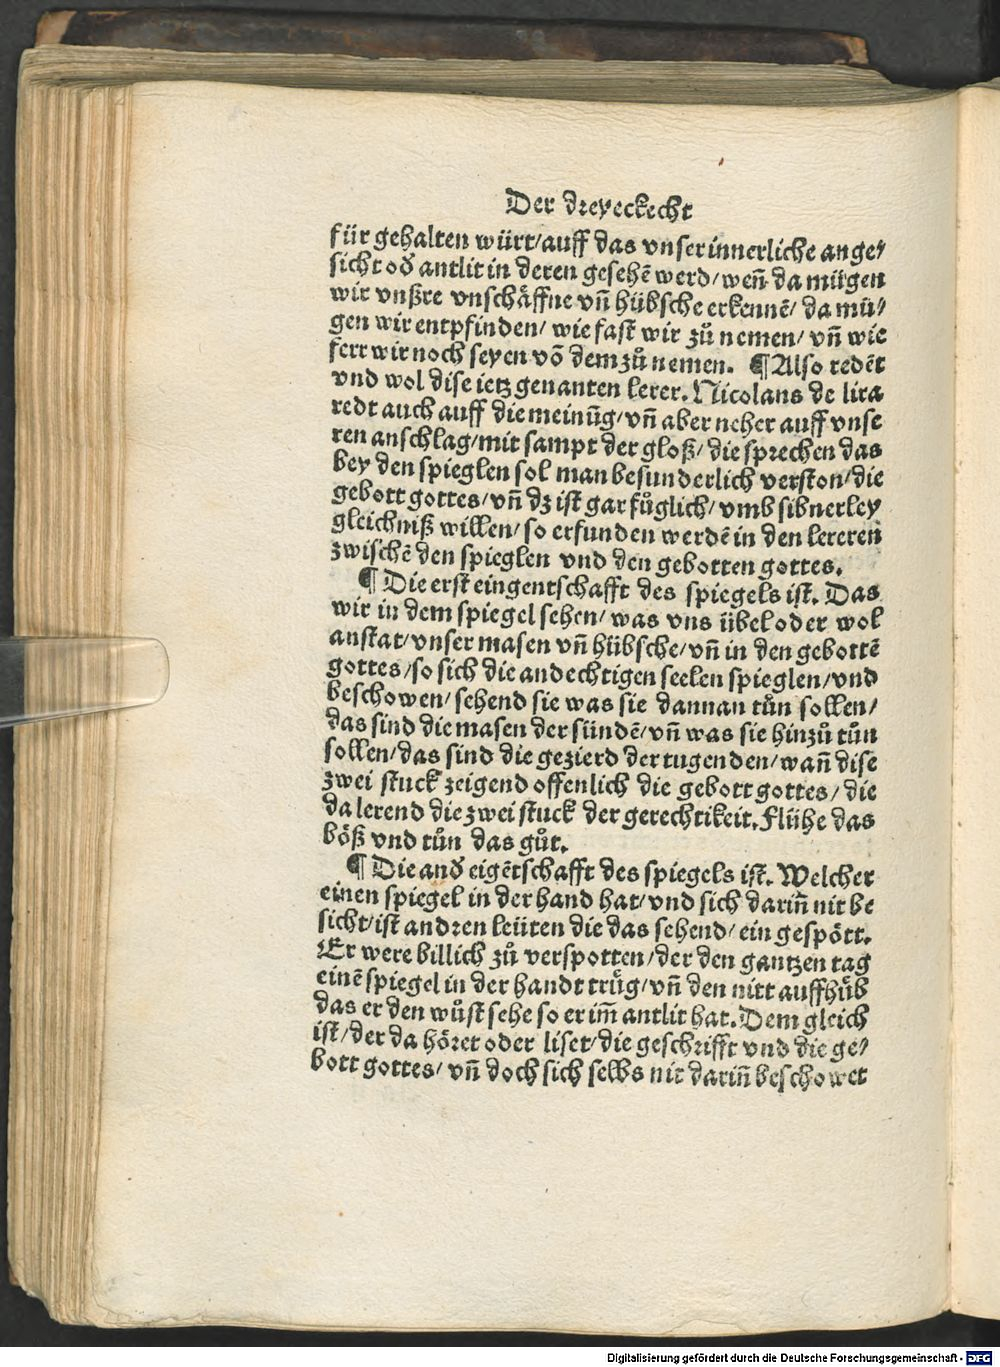 Der dreyeckecht
für gehalten würt/auff das vnser innerliche ange⸗
sicht oď antlit in deren gesehē werd/ weñ da mügen
wir vnßre vnschåffne vñ hübsche erkennē/ da mü⸗
gen wir entpfinden/ wie fast wir zů nemen/ vñ wie
ferr wir noch seyen vō dem zů nemen. ¶ Also redēt
vnd wol dise ietz genanten lerer. Nicolans de lira
redt auch auff die meinūg/ vñ aber neher auff vnse
ren anschlag/mit sampt der gloß/ die sprechen das
bey den spieglen sol man besunderlich verston/die
gebott gottes/ vñ dz ist gar fůglich/ vmb sibnerley
gleichniß willen/ so erfunden werdē in den lereren
zwischē den spieglen vnd den gebotten gottes.
¶ Die erst eingentschafft des spiegels ist. Das
wir in dem spiegel sehen/ was vns übel oder wol
anstat/ vnser masen vñ hübsche/ vñ in den gebottē
gottes/so sich die andechtigen seelen spieglen/vnd
beschowen/ sehend sie was sie dannan tůn sollen/
das sind die masen der sündē/ vñ was sie hinzů tůn
sollen/das sind die gezierd der tugenden/ wañ dise
zwei stuck zeigend offenlich die gebott gottes/ die
da lerend die zwei stuck der gerechtikeit. Flühe das
böß vnd tůn das gůt.
¶ Die anď eigētschafft des spiegels ist. Welcher
einen spiegel in der hand hat/ vnd sich dariñ nit be
sicht/ist andren leüten die das sehend/ ein gespött.
Er were billich zů verspotten/der den gantzen tag
einē spiegel in der handt trüg/ vñ den nitt auffhüb
das er den wůst sehe so er im̄ antlit hat. Dem gleich
ist/ der da höret oder liset/die geschrifft vnd die ge⸗
bott gottes/ vñ doch sich selbs nit dariñ beschowet
Digitalisierung gefördert durch die Deutsche Forschungsgemeinschaft - DFG